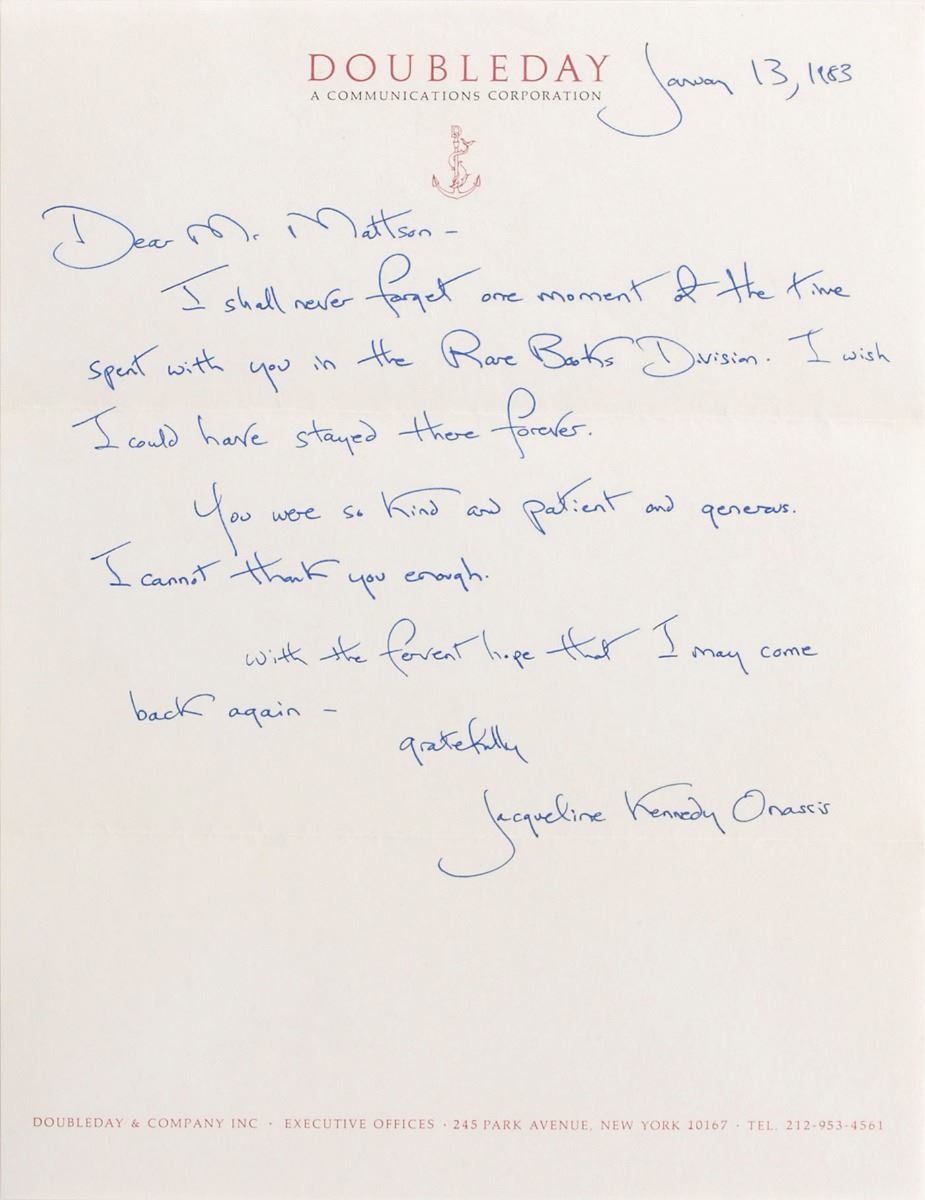 DOUBLEDAY
A COMMUNICATIONS CORPORATION
January 13, 1983
Dear Mr. Mattson –
I shall never forget one moment of the time
spent with you in the Rare Books Division. I wish
I could have stayed there forever.
You were so kind and patient and generous.
I cannot thank you enough.
with the fervent hope that I may come
back again –
gratefully
Jacqueline Kennedy Onassis
DOUBLEDAY & COMPANY INC · EXECUTIVE OFFICES · 245 PARK AVENUE, NEW YORK 10167 · TEL. 212-953-4561